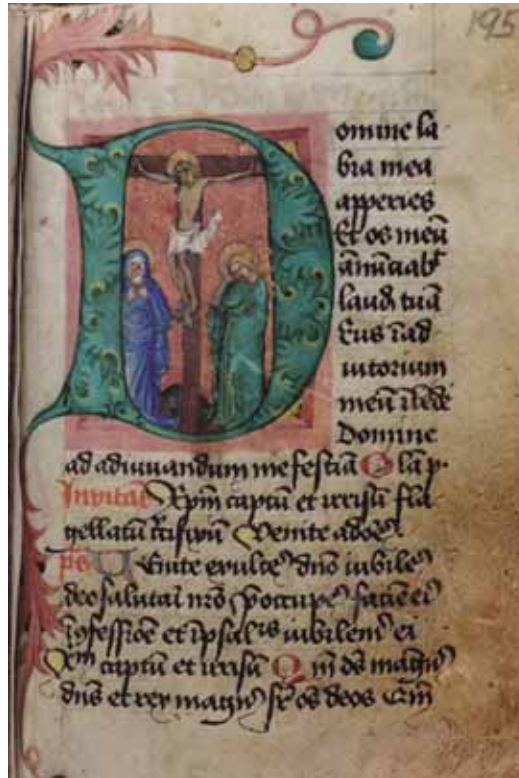 195
Domine la
bra mea
apperies
Et os meū
ānūciabᵗ
laudē tuā
Eus ī ad
iutorium
meū ītēde
Domine
ad adiuuandum me festīa Gla p.
Inuitat Xp̄m captū et irrisū fla
gellatū c̄cifixū Venite adoꝰ
ps Uenite exulteꝰ dn̄o iubileꝰ
deo salutaī nr̄o p̄occupeꝰ faciē eiꝰ
ī ꝯfessiōe et ī psalīs iubilemꝰ ei
Xp̄m captū et irrisū Qm̄ ds̄ magnꝰ
dn̄s et rex magnꝰ sr̄ os̄ deos Qm̄